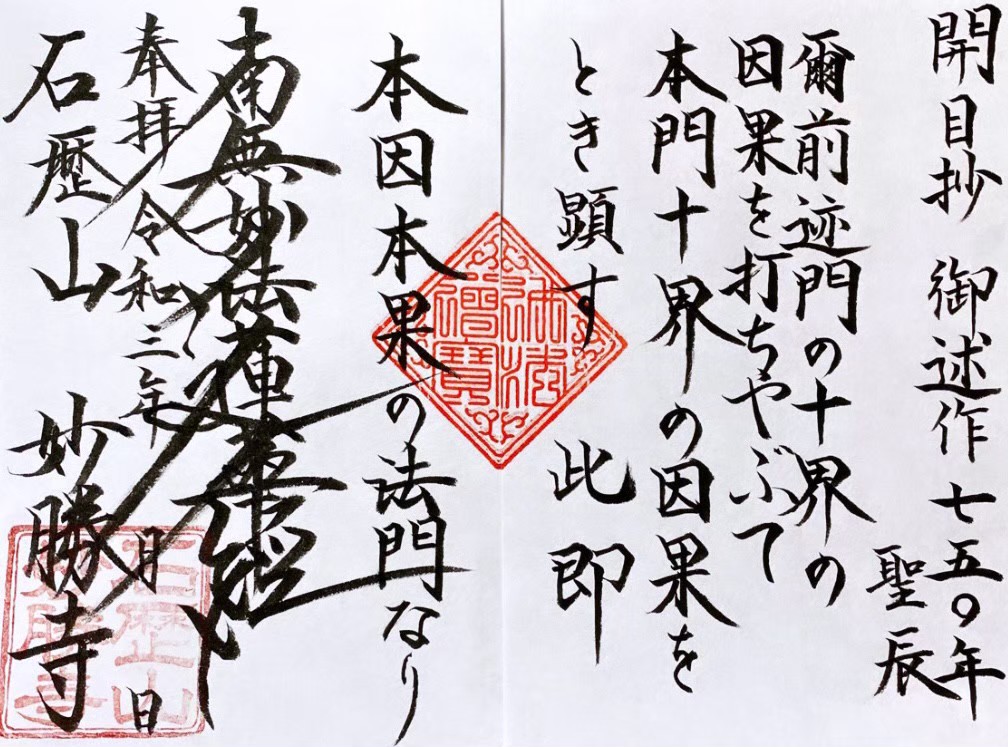 開目抄 御述作七五〇年
聖辰
爾前迹門の十界の
因果を打ちやぶて
本門十界の因果を
とき顕す 此即
本因本果の法門なり
南無妙法蓮華経
奉拝 令和三年 月 日
石歴山 妙勝寺
石歴山
妙勝寺